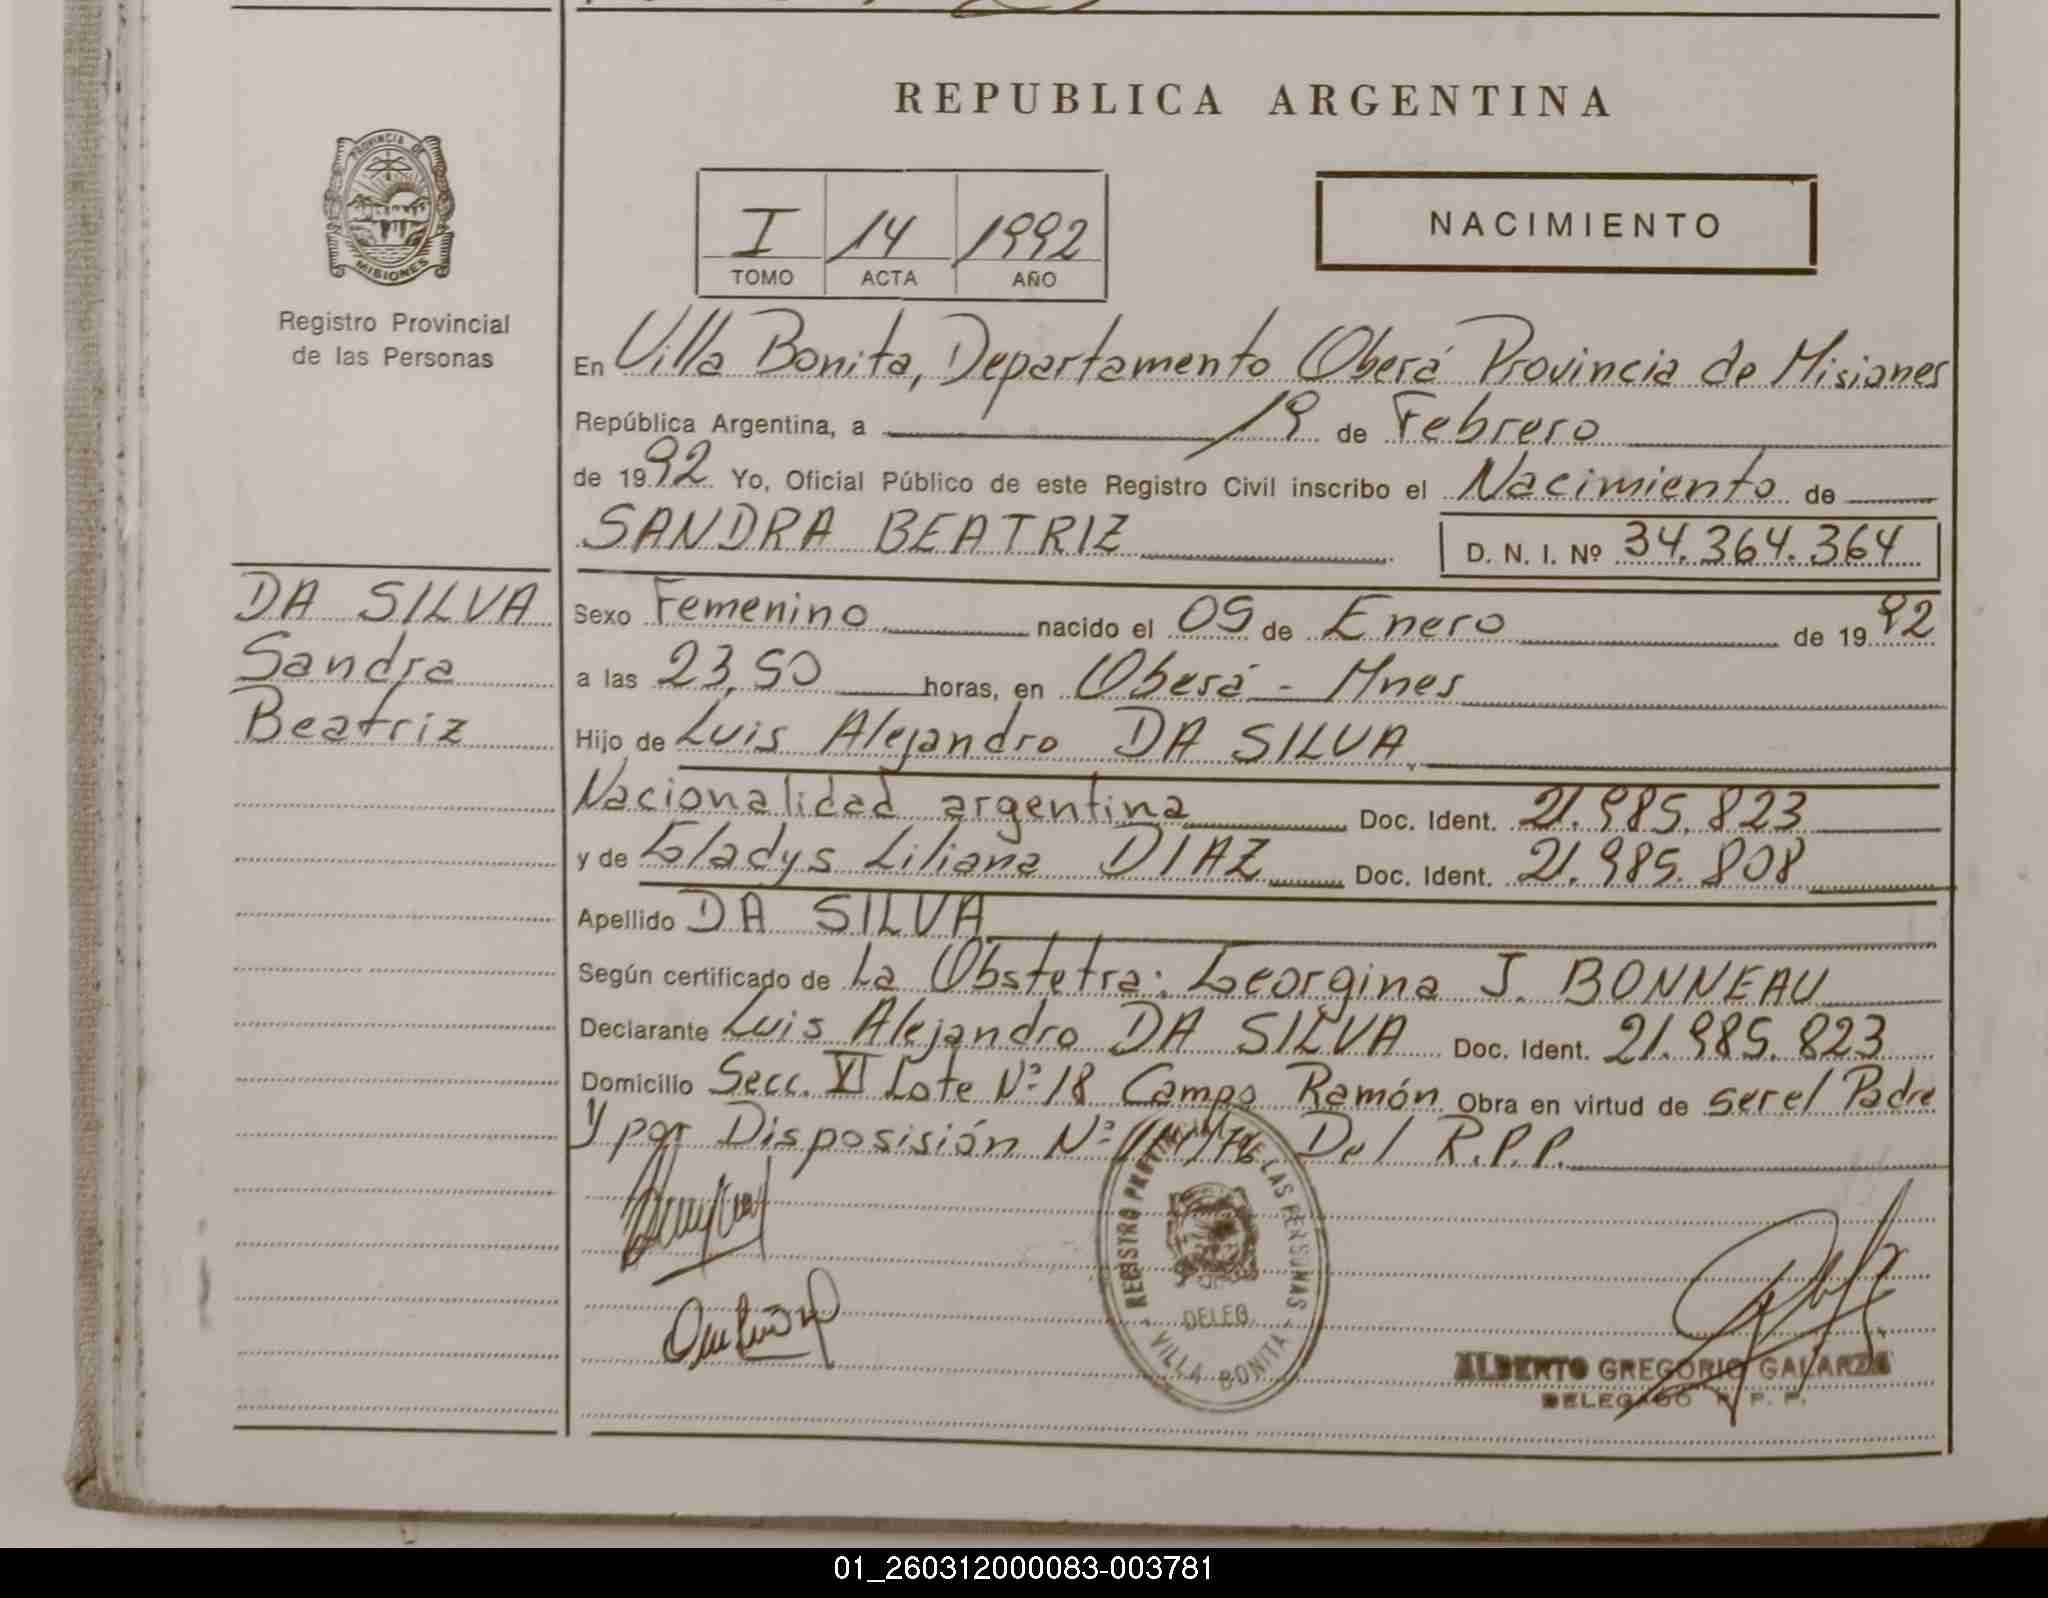 REPUBLICA ARGENTINA
PROVINCIA DE
MISIONES
Registro Provincial
de las Personas
I 14 1992
TOMO ACTA AÑO
NACIMIENTO
En Villa Bonita, Departamento Oberá Provincia de Misiones
República Argentina, a 19 de Febrero
de 1992 Yo, Oficial Público de este Registro Civil inscribo el Nacimiento de
SANDRA BEATRIZ D. N. I. Nº 34.364.364
DA SILVA
Sandra
Beatriz
Sexo Femenino nacido el 09 de Enero de 1992
a las 23,50 horas, en Oberá - Mnes
Hijo de Luis Alejandro DA SILVA
Nacionalidad argentina Doc. Ident. 21.985.823
y de Gladys Liliana DIAZ Doc. Ident. 21.985.808
Apellido DA SILVA
Según certificado de La Obstetra: Georgina J. BONNEAU
Declarante Luis Alejandro DA SILVA Doc. Ident. 21.985.823
Domicilio Secc. VI Lote Nº 18 Campo Ramón Obra en virtud de ser el Padre
Y por Disposisión Nº Del R.P.P.
REGISTRO PROVINCIAL DE LAS PERSONAS
DELEG.
VILLA BONITA
ALBERTO GREGORIO GALARZA
DELEGADO R. P. P.
01_260312000083-003781